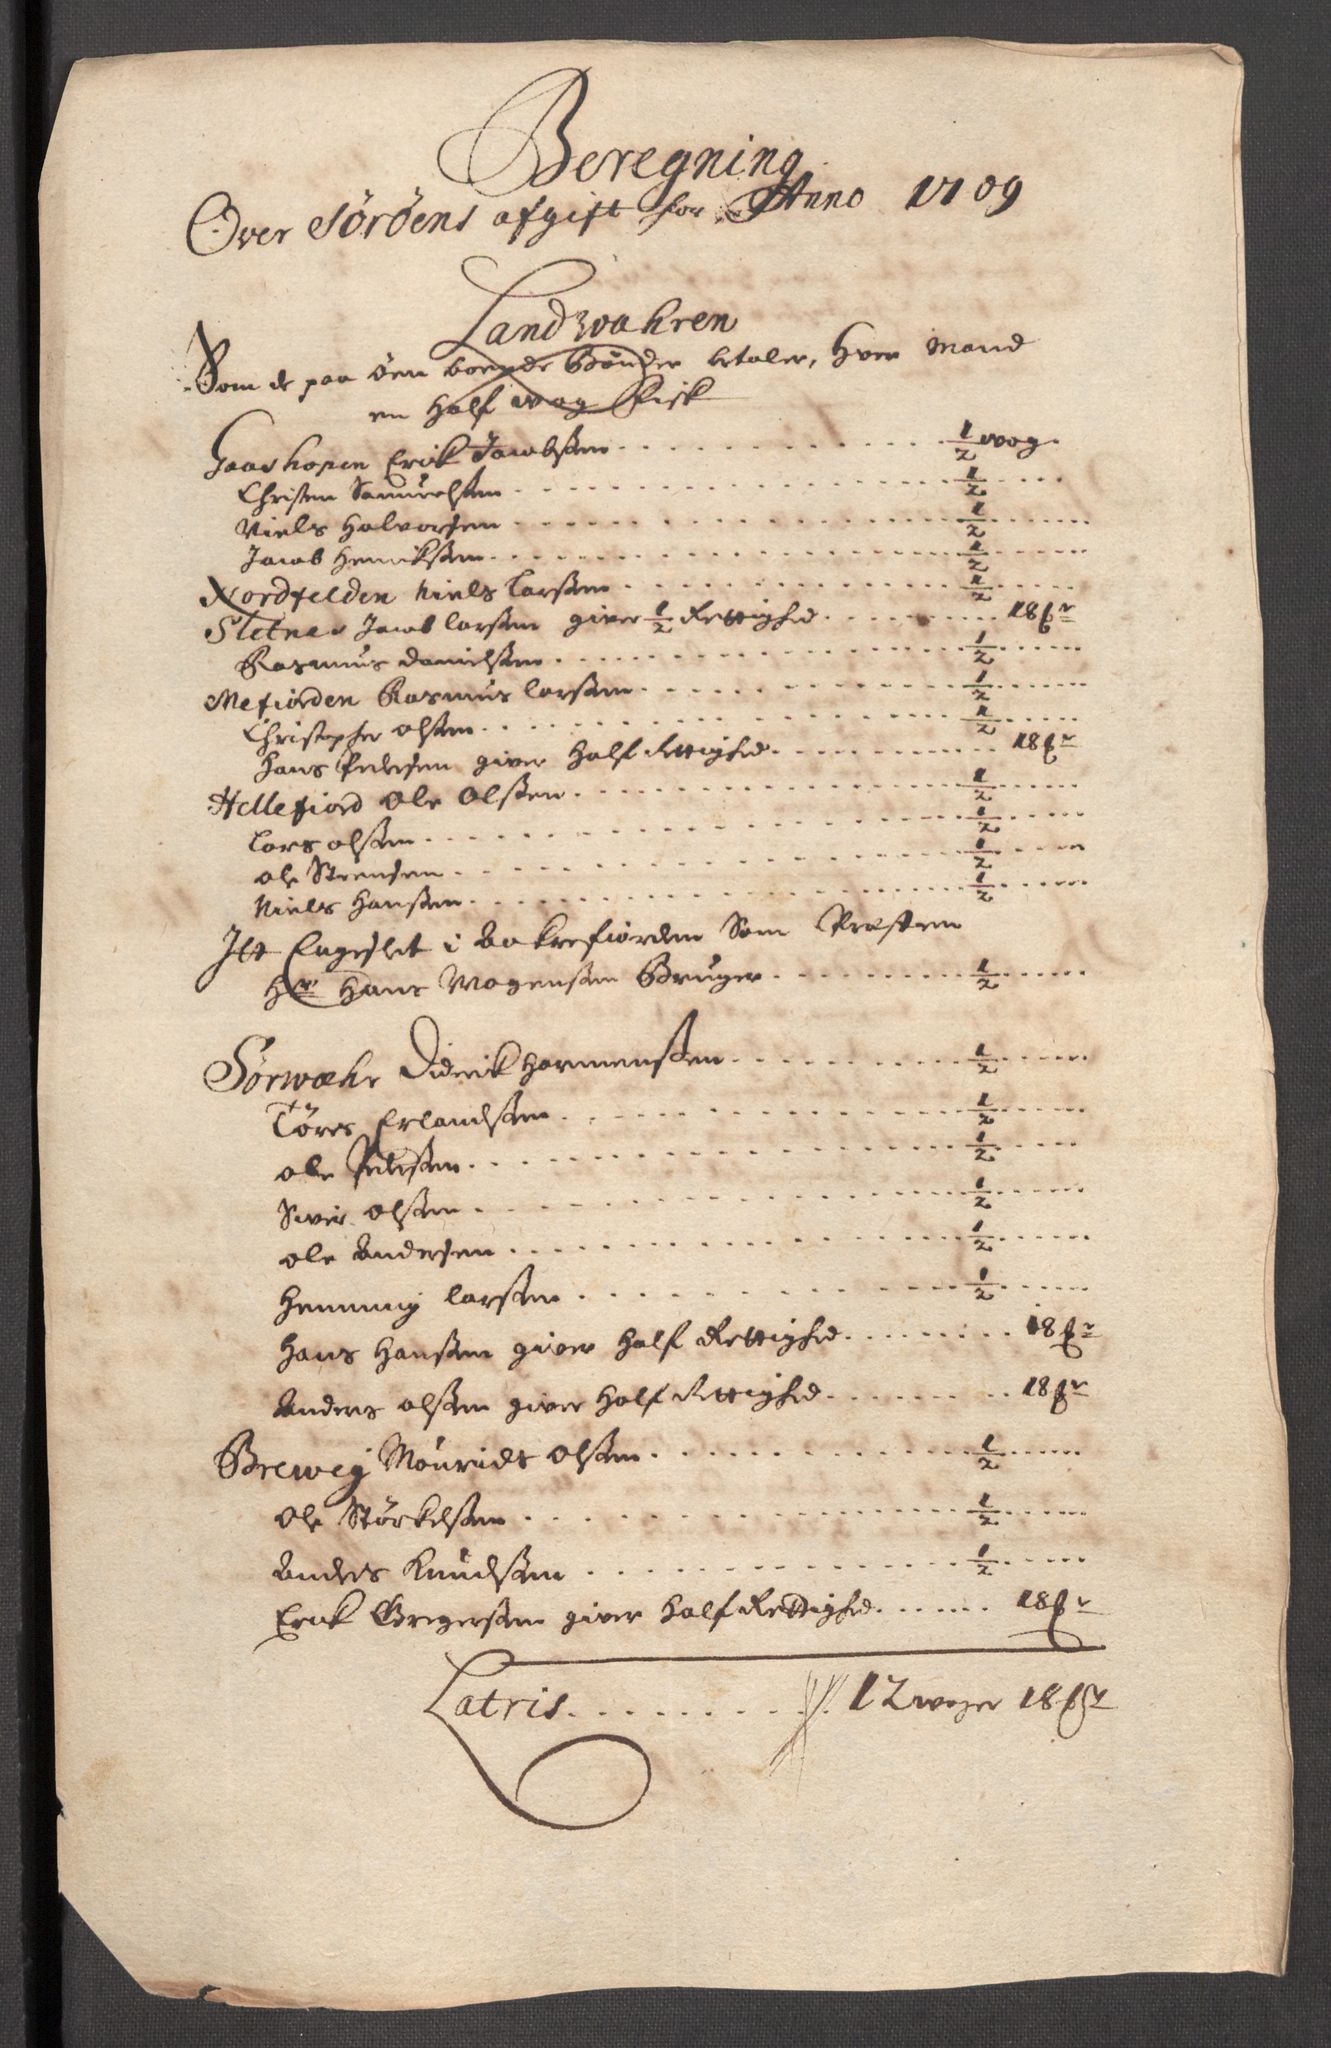 Beregning
Over Söröens afgift for Anno 1709
Landwahren
Som de paa öen boende Bönder betaler, hver Mand
en half wog Fisk
Gaashopen Erick Jacobsen ½ wog
Christen Samuelsen ½
Niels Halvorsen ½
Jacob Henriksen ½
Nordfelden Niels Larsen ½
Sletnes Jacob Larsen giver ½ Rettighed 18 ℔r
Rasmus Danielsen ½
Mefiorden Rasmus Larsen ½
Christopher Olsen ½
Hans Pedersen giver Half Rettighed 18 ℔r
Hellefiord Ole Olsen ½
Lars Olsen ½
Ole Steensen ½
Niels Hansen ½
Itt Engeslet i Bakrefiorden Som Præsten
Hr Hans Mogensen Bruger ½
Sørwæhr Didrik Harmensen ½
Töres Erlandsen ½
Ole Pedersen ½
Siver Olsen ½
Ole Andersen ½
Henning Larsen ½
Hans Hansen giver Half Rettighed 18 ℔r
Anders Olsen giver Half Rettighed 18 ℔r
Brewig Mourids Olsen ½
Ole Störkelsen ½
Anders Knudsen ½
Erik Gregersen giver Half Rettighed 18 ℔r
Latris 12 woger 18 ℔r